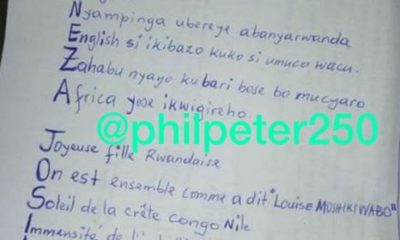 Nyampinga ubereye abanyarwanda
English si ikibazo kuko si umuco wacu.
Zahabu nyayo ku bari bose bo mucyaro
Africa yose ikwigireho
@philpeter250
Joyeuse fille Rwandaise
On est ensemble comme a dit "Louise MUSHIKIWABO"
Soleil de la crête congo Nile
Immensité de